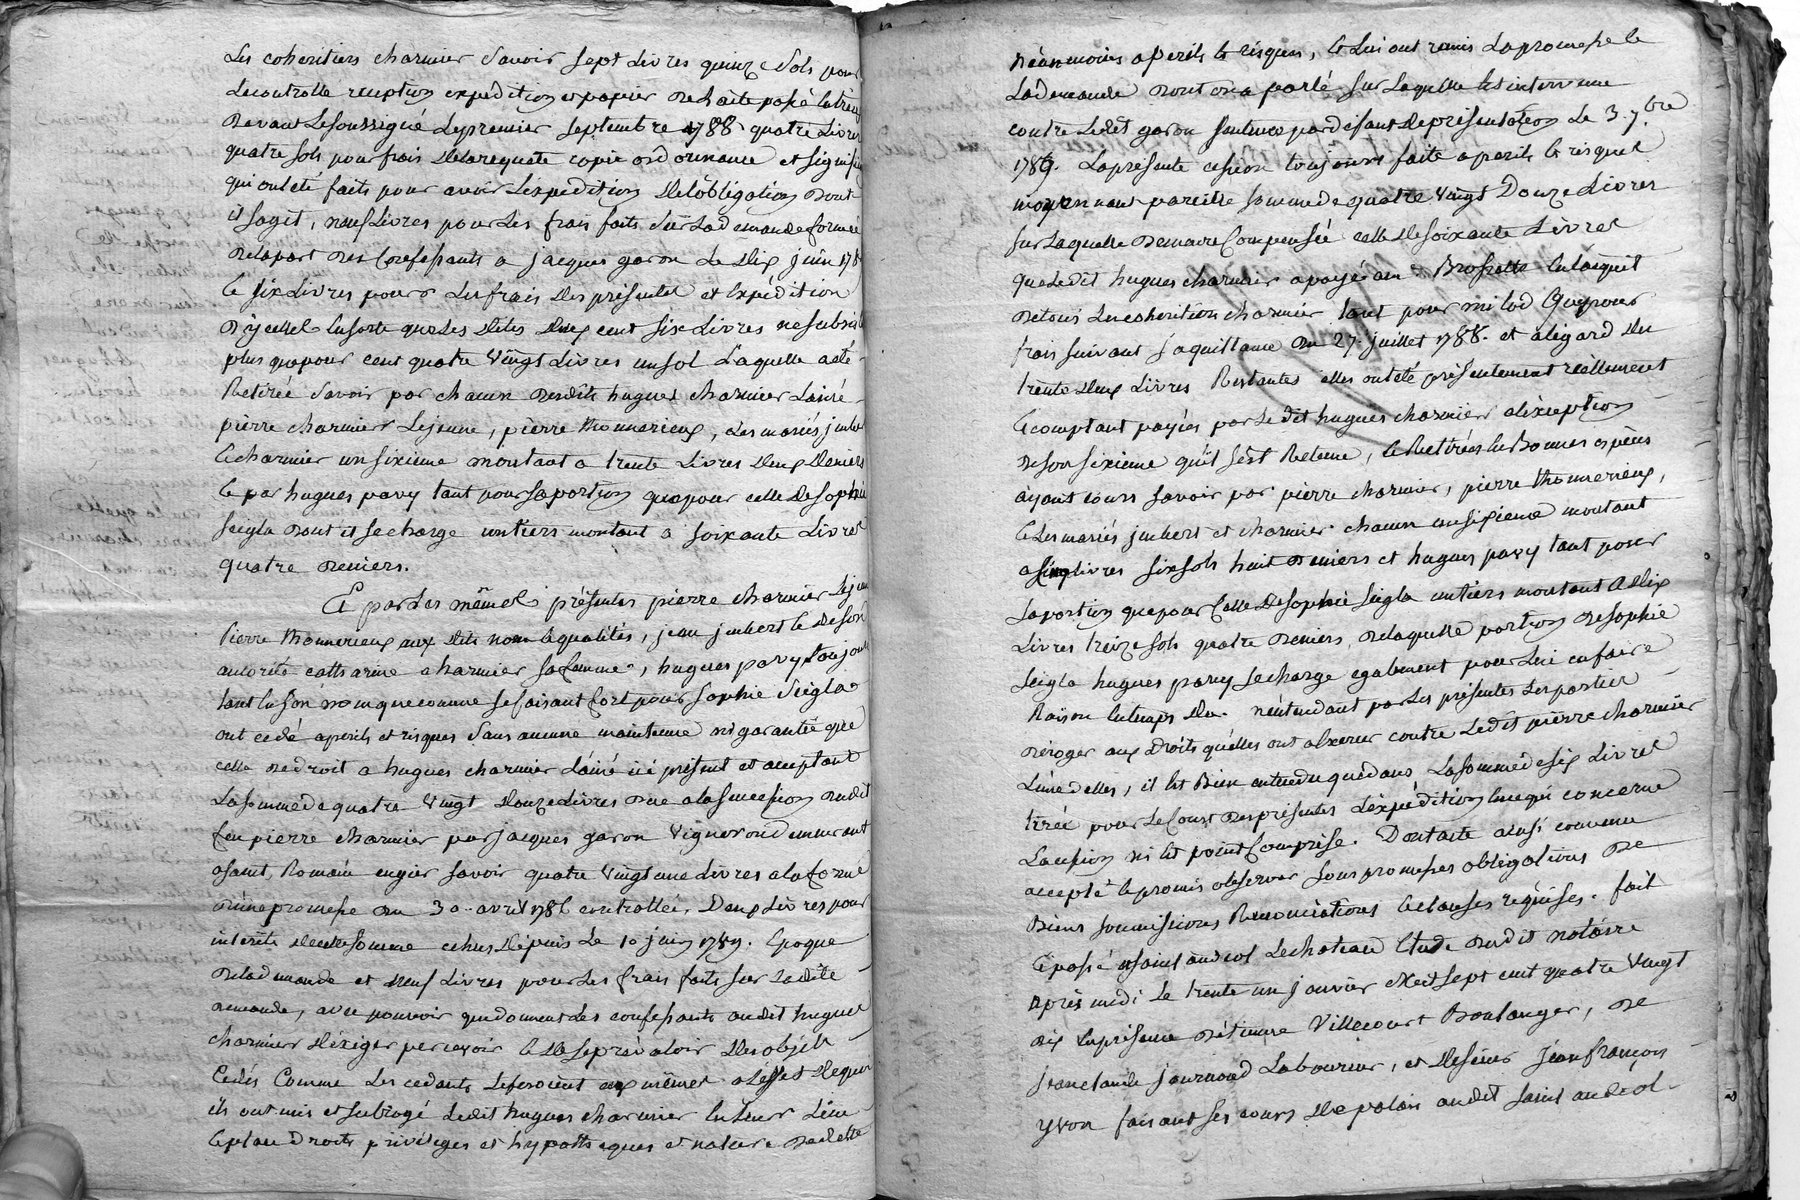 Les coheritiers charnier savoir sept Livres quinze sols pour
Lecontrolle reception expedition et papier de
devant Le soussigné Le premier septembre 1788 quatre Livres
quatre sols pour frais de La requete copie ordonnance et
qui ont eté faits pour avoir L'expedition de L'obligation dont
il sagit, neuf Livres pour Les frais faits sur La demande formeé
de La part des Confessants a jacques garon Le dix juin 178
Et six Livres pour Les frais des presentes et Expédition
d'ycelles En sorte que Les dites deux cent six Livres ne
plus que pour cent quatre vingt Livres un sol Laquelle a eté
Retirée savoir par chacun desdits hugues charnier L'ainé
pierre charnier Lejeune, pierre thonnerieux, Les mariés
Et charnier un sixieme montant a trente Livres deux deniers
Et par hugues pavy tant pour sa portion que pour celle de sophie
seigla dont il se charge un tiers montant a soixante Livres
quatre deniers.
Et par Les mêmes présentes pierre charnier
Pierre thonnerieux aux dits nom Et qualités, jean jmbert Et de son
autorité catharine charnier sa femme, hugues pavy
tant En son nom que comme se faisant fort pour sophie Seigla
ont cedé a perils et risques sans aucune maintenue ni garantie que
celle de droit a hugues charnier L'ainé ici présent et acceptant
La somme de quatre vingt douze Livres due a la succession dudit
feu pierre charnier par jacques garon vigneron demeurant
a saint Romain en gier savoir quatre vingt une Livres a la forme
d'une promesse du 30 avril 1786 controllée, Deux Livres pour
interêts de cette somme echus depuis Le 10 juin 1789. Epoque
de La demande et neuf Livres pour Les frais faits sur Ladite
demande, avec pouvoir que donnent Les confessants audit hugues
charnier d'éxiger percevoir Et de se prévaloir des objets
Cedés Comme Les cedants Le feroient eux mêmes a L'effet de quoi
ils ont mis et subrogé Ledit hugues charnier En Leur Lieu
Et place droits priviléges et hypotheques et nature de dette
néanmoins a perils Et risques, Et Lui ont remis La promesse Et
La demande dont on a parlé sur Laquelle Est intervenue
contre Ledit garon sentence par défaut de présentation Le 3 7.bre
1789. La présente cession toujours faite a perils Et risques
moyennant pareille somme de quatre vingt Douze Livres
sur Laquelle demeure Compensée celle de soixante Livres
que Ledit hugues charnier a payé au s. Brossette En Lacquit
Les coheritiers charnier tant pour milod que pour
frais suivant sa quittance du 27 juillet 1788. et a L'égard des
trente deux Livres Restantes elles ont eté présentement réellement
Et comptant payées par Ledit hugues charnier a L'exception
de son sixieme qu'il s'est Retenu, Et Retirées En Bonnes espèces
ayant cours savoir par pierre charnier, pierre thonnerieux,
Et Les mariés jmbert et charnier chacun un sixieme montant
a cinq Livres six sols huit deniers et hugues pavy tant pour
sa portion que pour Celle de sophie seigla un tiers montant a dix
Livres treize sols quatre deniers, de Laquelle portion de sophie
seigla hugues pavy se charge egalement pour Lui en faire
Raison En temps dû. n'entendant par Les présentes Les parties
déroger aux droits qu'elles ont a L'exercer contre Ledit pierre charnier
L'une d'elles, il Est Bien entendu que dans La somme de six Livres
tirée pour Le Cout des présentes L'expédition En ce qui concerne
La cession n'y Est point Comprise. Dont acte ainsi convenu
accepté Et promis observer sous promesses obligations de
Biens soumissions Renonciations Et clauses requises. fait
Et passé a saint andeol Lechateau Etude dudit notaire
après midi Le trente un janvier mil sept cent quatre vingt
dix En présence d'étienne Villecourt Boulanger, de
jean claude journoud Laboureur, et de sieur Jean françois
yvon faisant ses cours de palais audit saint andeol